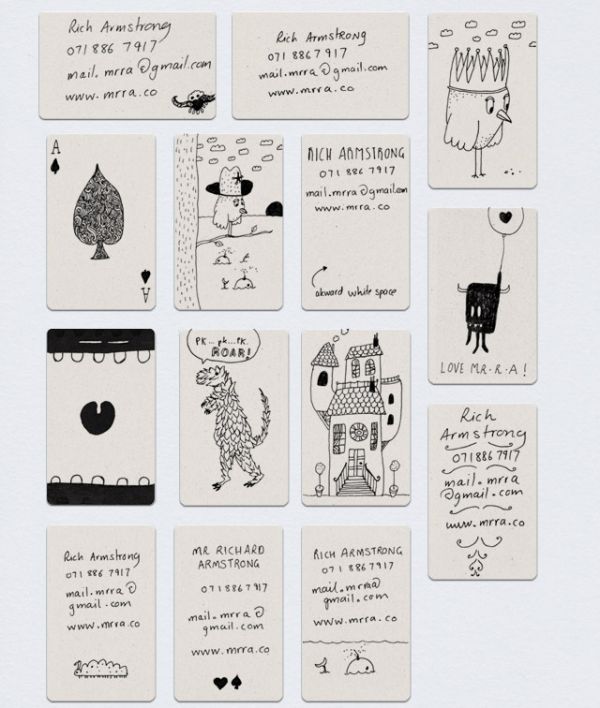 Rich Armstrong
071 886 7917
mail.mrra@gmail.com
www.mrra.co
Rich Armstrong
071 886 7917
mail.mrra@gmail.com
www.mrra.co
A
A
RICH ARMSTRONG
071 886 7917
mail.mrra@gmail.com
www.mrra.co
akward white space
LOVE MR·R·A!
PK... PK... PK.
ROAR!
Rich
Armstrong
071 886 7917
mail.mrra
@gmail.com
www.mrra.co
Rich Armstrong
071 886 7917
mail.mrra@
gmail.com
www.mrra.co
MR RICHARD
ARMSTRONG
071 886 7917
mail.mrra@
gmail.com
www.mrra.co
RICH ARMSTRONG
071 886 7917
mail.mrra@
gmail.com
www.mrra.co